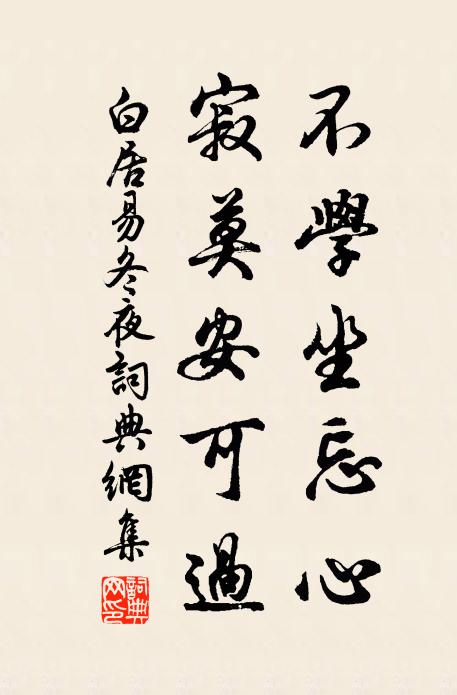 不學坐忘心
寂莫安可過
白居易冬夜詞典網集
詞典网印